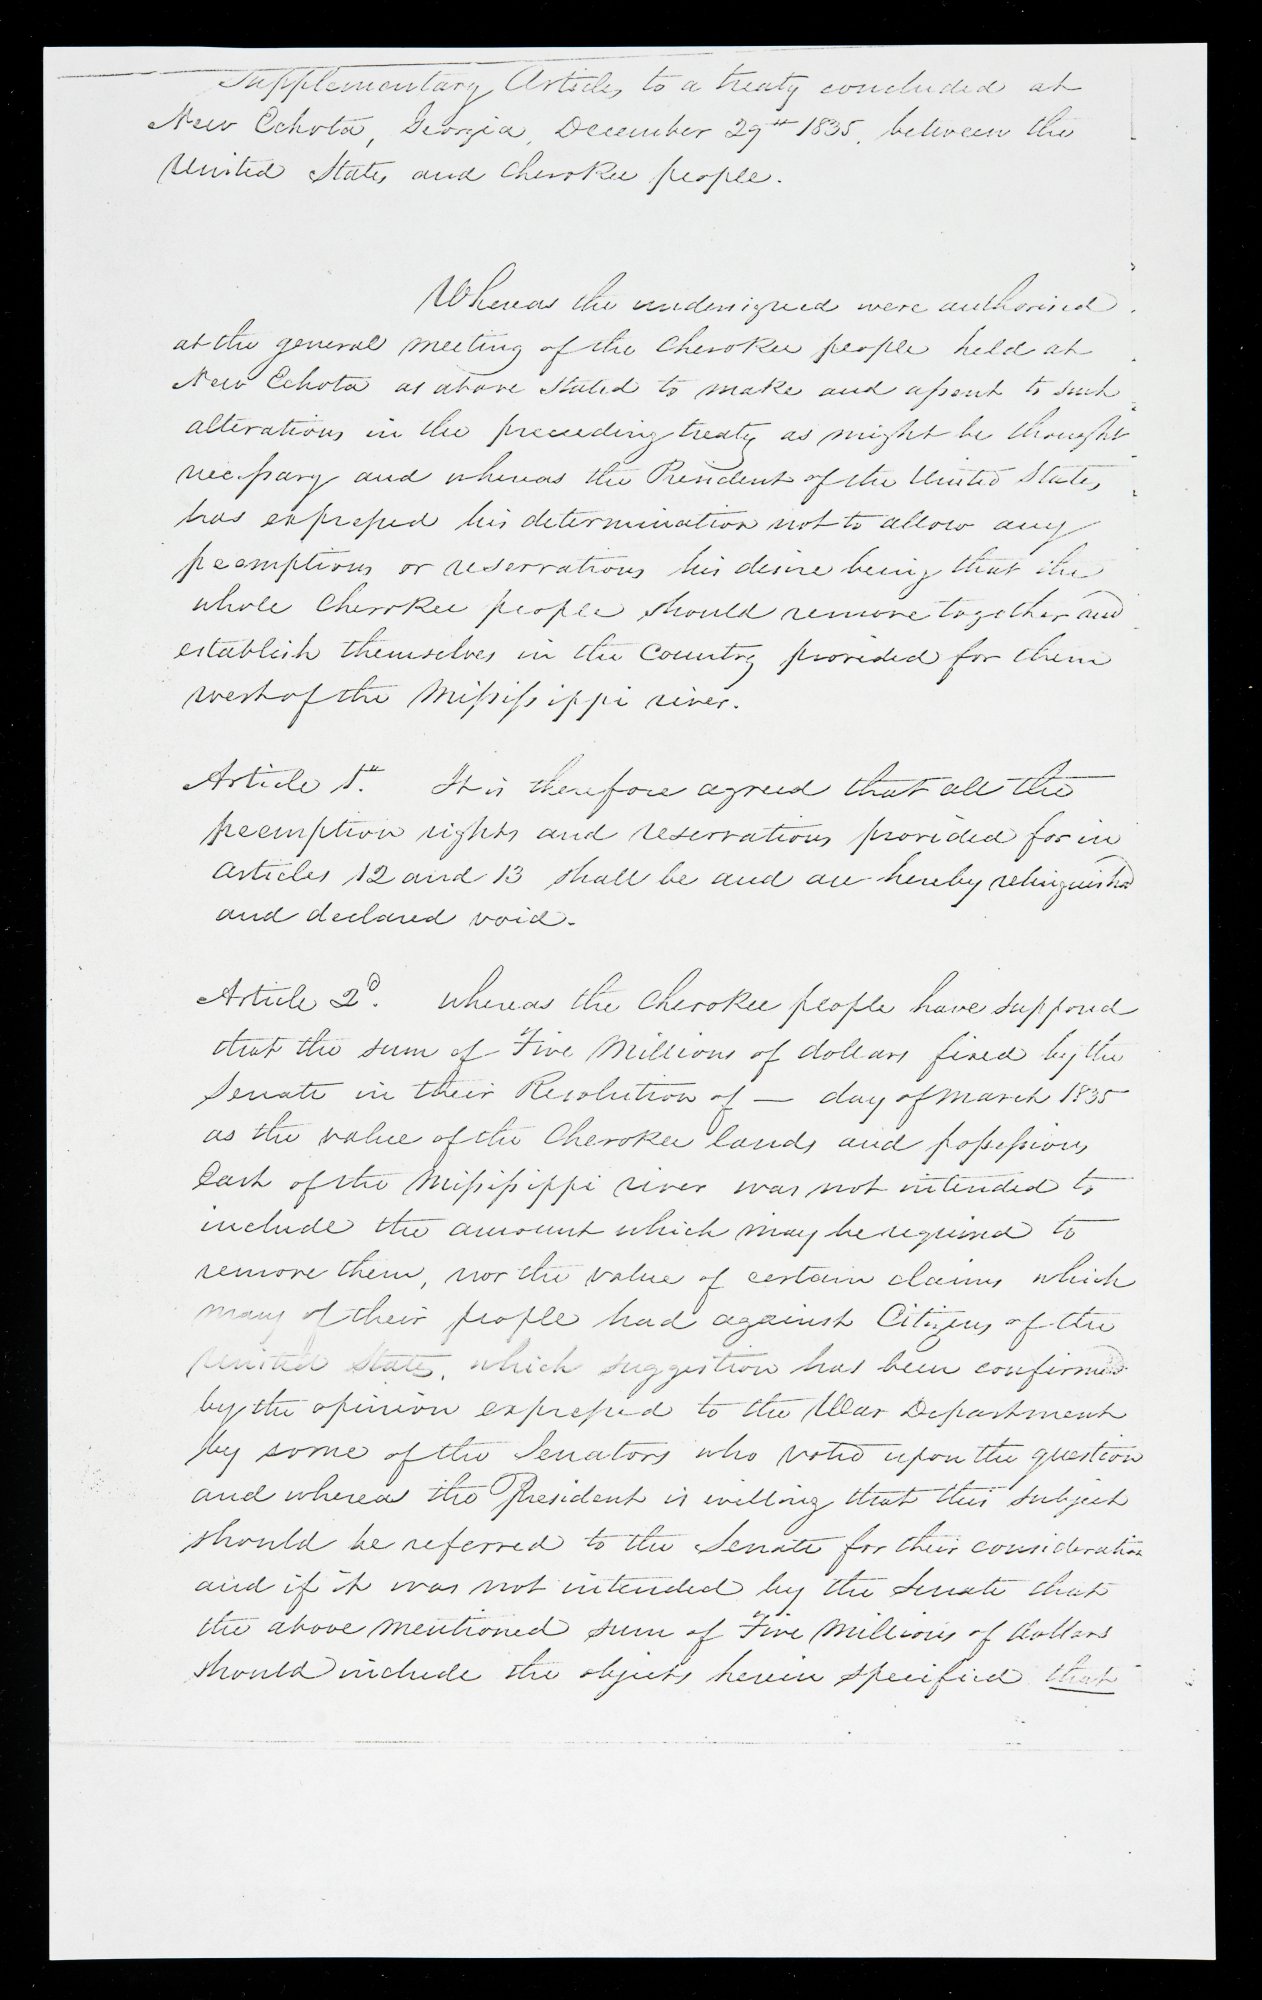 Supplementary Articles to a treaty concluded at
New Echota, Georgia, December 29th 1835, between the
United States and Cherokee people.
Whereas the undersigned were authorised
at the general meeting of the Cherokee people held at
New Echota as above stated to make and assent to such
alterations in the preceeding treaty as might be thought
necessary and whereas the President of the United States
has expressed his determination not to allow any
peemptions or reservations his desire being that the
whole Cherokee people should remove together and
establish themselves in the Country provided for them
west of the Mississippi river.
Article 1st. It is therefore agreed that all the
peemption rights and reservations provided for in
articles 12 and 13 shall be and are hereby relinquished
and declared void.
Article 2d. whereas the Cherokee people have supposed
that the sum of Five Millions of dollars fixed by the
Senate in their Resolution of — day of March 1835
as the value of the Cherokee lands and possessions
East of the Mississippi river was not intended to
include the amount which may be required to
remove them, nor the value of certain claims which
many of their people had against Citizens of the
United States, which suggestion has been confirmed
by the opinion expressed to the War Department
by some of the Senators who voted upon the question
and whereas the President is willing that this subject
should be referred to the Senate for their consideration
and if it was not intended by the Senate that
the above mentioned sum of Five Millions of dollars
should include the objects herein specified that